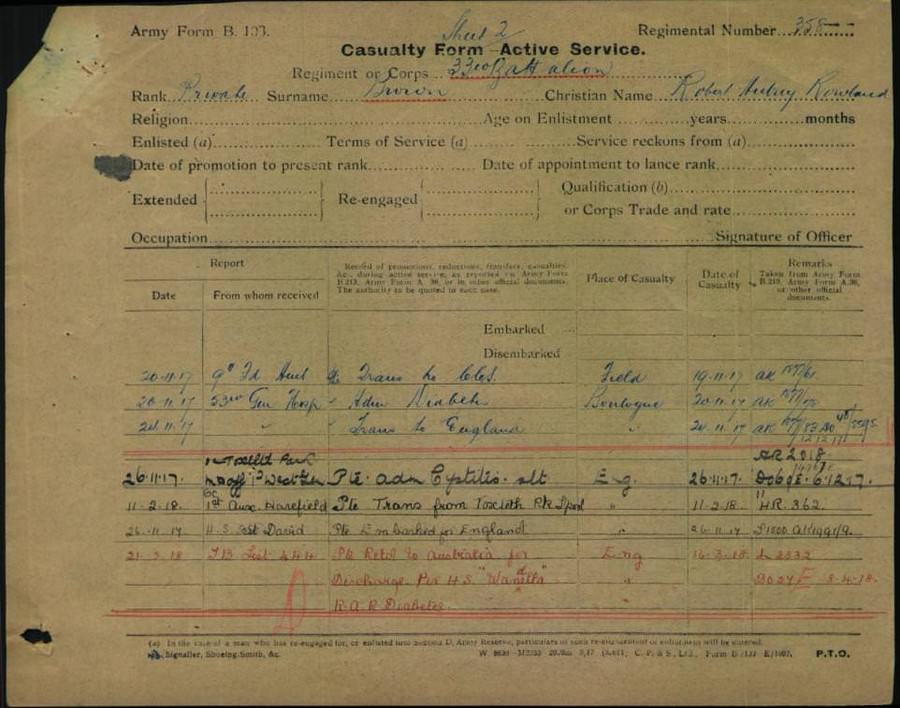 Army Form B. 103.
Sheet 2
Regimental Number 358
Casualty Form - Active Service.
Regiment or Corps 33rd Battalion
Rank Private Surname Brown Christian Name Robert Aubrey Rowland
Religion Age on Enlistment years months
Enlisted (a) Terms of Service (a) Service reckons from (a)
Date of promotion to present rank Date of appointment to lance rank
Extended Re-engaged Qualification (b)
or Corps Trade and rate
Occupation Signature of Officer
Report
Date From whom received
Record of promotions, reductions, transfers, casualties, &c., during active service, as reported on Army Form B.213, Army Form A. 36, or in other official documents. The authority to be quoted in each case.
Place of Casualty
Date of Casualty
Remarks
Taken from Army Form B.213, Army Form A.36, or other official documents.
Embarked
Disembarked
20.11.17 9" Fd Aust Trans to CCS. Field 19.11.17
20.11.17 53rd Gen Hosp Adm Diabetes Boulogne 20.11.17
24.11.17 " Trans to England " 24.11.17
Toxteth Park HR 2018
26.11.17. Pte adm Cystitis. slt Eng. 26.11.17. 6.12.17.
11.2.18. 1st Aux. Harefield Pte Trans from Toxteth Pk " 11.2.18 HR. 362.
26.11.17 H.S. St David Pte Embarked for England " 26.11.17
21.3.18 Pte Retd to Australia for Eng 16.3.18
Discharge. Per H.S. "Wandilla" " 8.4.18.
Diabetes "
(a) In the case of a man who has re-engaged for, or enlisted into Section D, Army Reserve, particulars of such re-engagement or enlistment will be entered.
Signaller, Shoeing-Smith, &c.
P.T.O.